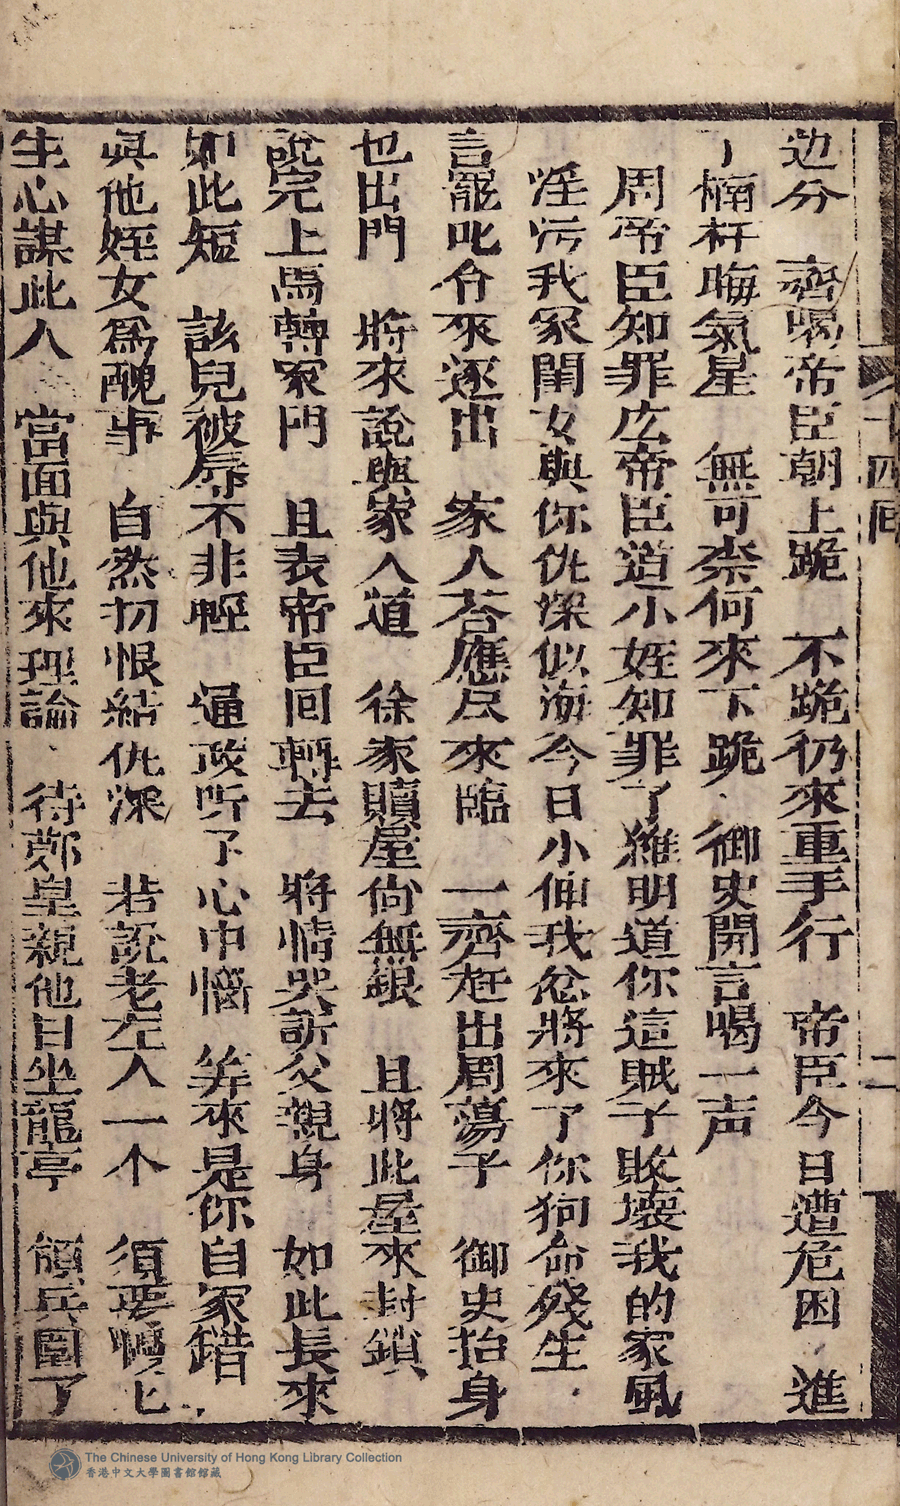 边分　齊喝帝臣朝上跪　不跪仍來重手行　帝臣今日遭危困　進
了楠杆晦氣星　無可柰何來下跪　御史開言喝一声
周帝臣知罪庅帝臣道小姪知罪了雜明道你這賊子敗壞我的家風
淫污我家閨女與你仇深似海今日小伸我忿將來了你狗命殘生
言罷叱令來逐出　家人荅應尽來臨　一齊赶出周蕩子　御史抬身
也出門　將來說與家人道　徐家贖屋尙無銀　且將此屋來封鎖
說完上馬轉家門　且表帝臣回轉去　將情哭訴父親身　如此長來
如此短　該兒被辱不非輕　通政听了心中惱　筭來是你自家錯
與他姪女爲醜事　自然扨恨結仇深　若說老左人一个　須要愼
生心謀此人　當面與他來理論　待鄭皇親他日坐龍亭　領兵圍了
十四回
二
The Chinese University of Hong Kong Library Collection
香港中文大學圖書館館藏